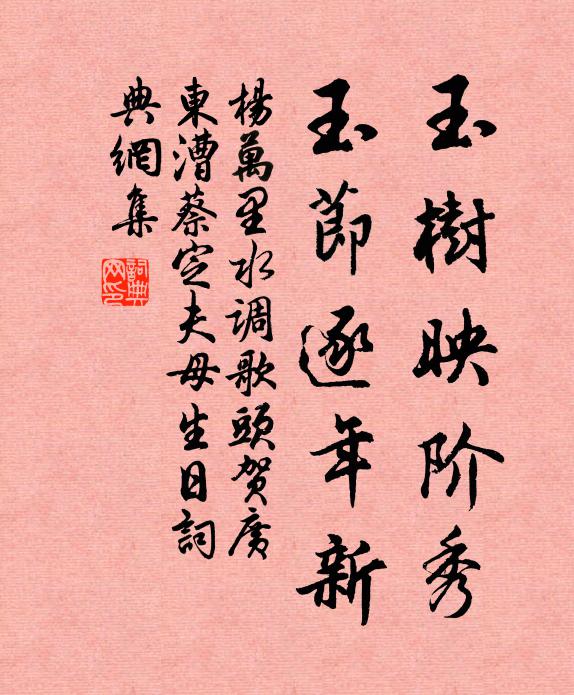 玉樹映阶秀
玉節逐年新
楊萬里水调歌頭賀廣
東漕蔡定夫母生日詞
典網集
詞典网印